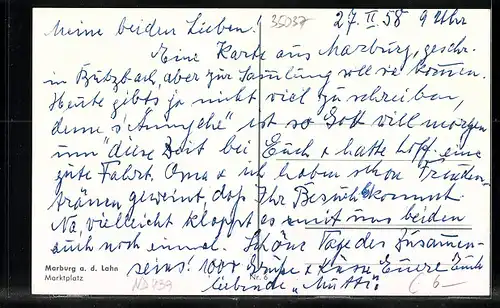 35037
27. II. 58 9 Uhr
Meine beiden Lieben!
Eine Karte aus Marburg, geschr.
in Butzbach, aber zur Sammlung soll sie kommen.
Heute gibts ja nicht viel zu schreiben,
denn s' ist so Gott will morgen
um diese Zeit bei Euch + hatte hoff. eine
gute Fahrt. Oma + ich haben schon Freuden-
tränen geweint, daß Ihr Besuch bekommt.
Na, vielleicht klappt es mit uns beiden
auch noch einmal. Schöne Tage des Zusammen-
seins! 100x Grüße + Küsse Euere Euch
liebende "Mutti."
Marburg a. d. Lahn
Marktplatz
Nr. 6